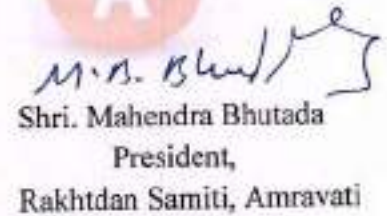 A
M.B. Bhud
Shri. Mahendra Bhutada
President,
Rakhtdan Samiti, Amravati